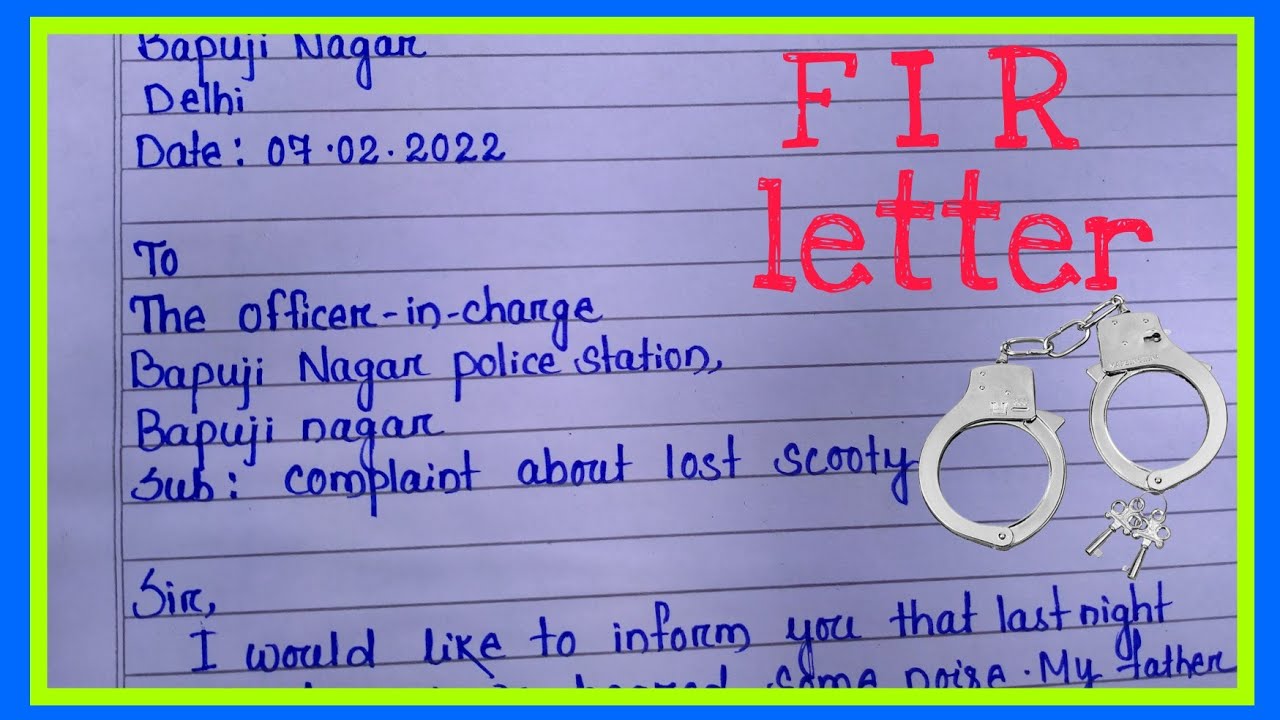 Bapuji Nagar
Delhi
Date: 07.02.2022
FIR
letter
To
The officer-in-charge
Bapuji Nagar police station,
Bapuji nagar
Sub: complaint about lost scooty
Sir,
I would like to inform you that last night
heared some noise. My father